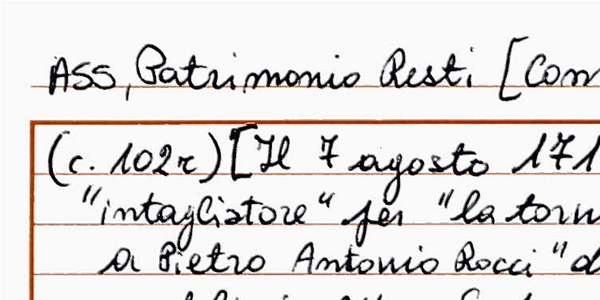 ASS, Patrimonio Resti [Com
(c. 102r) [Il 7 agosto 171
"intagliatore" per "la torn
a Pietro Antonio Rocci "d